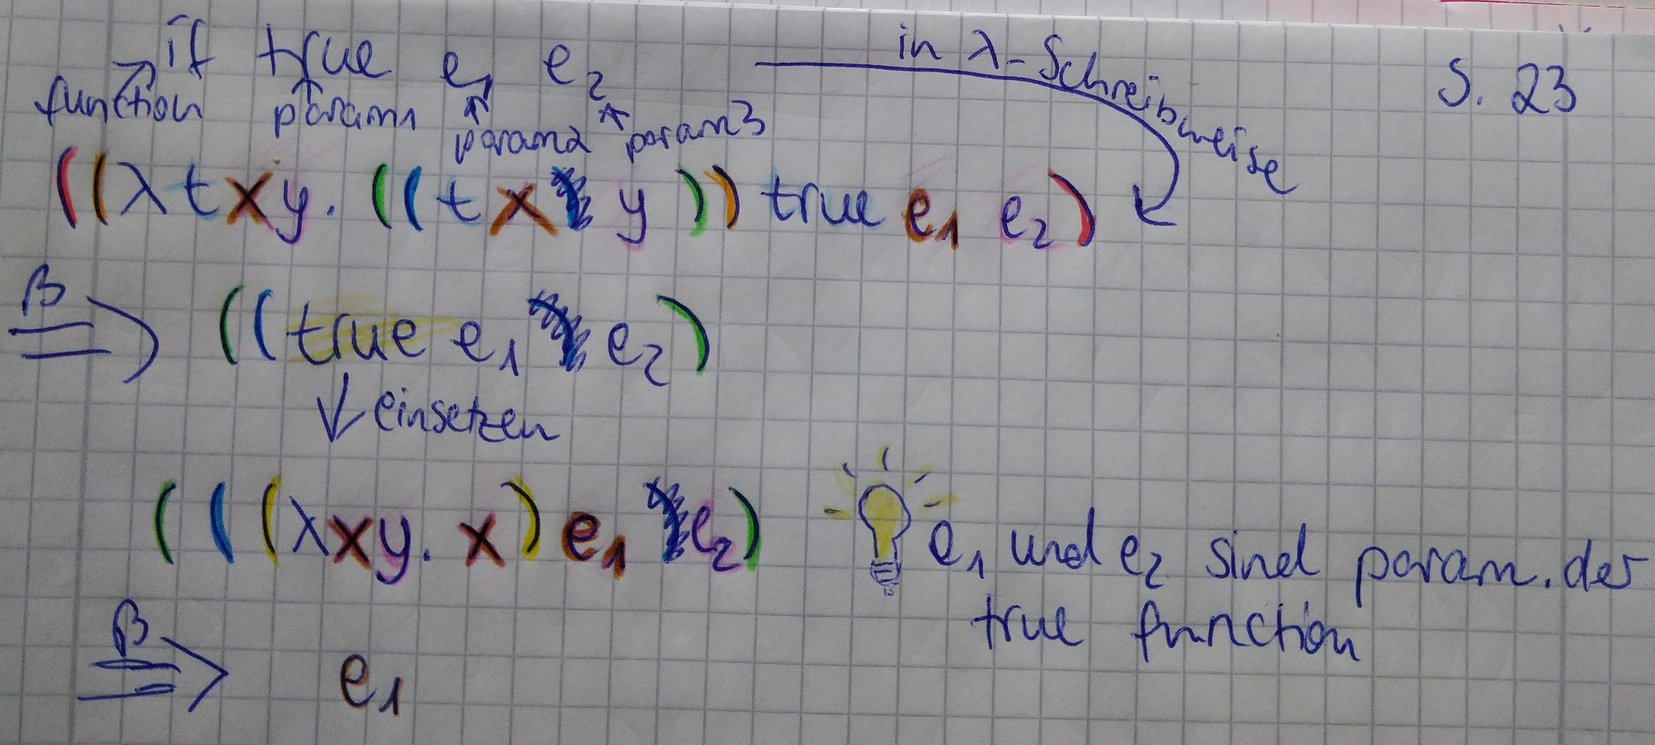 if true e₁ e₂ in λ-Schreibweise S. 23
function param1 param2 param3
((λtxy. ((tx y)) true e₁ e₂)
β ⇒ ((true e₁ e₂)
↓ einsetzen
(((λxy. x) e₁ e₂) e₁ und e₂ sind param. der
true function
β ⇒ e₁